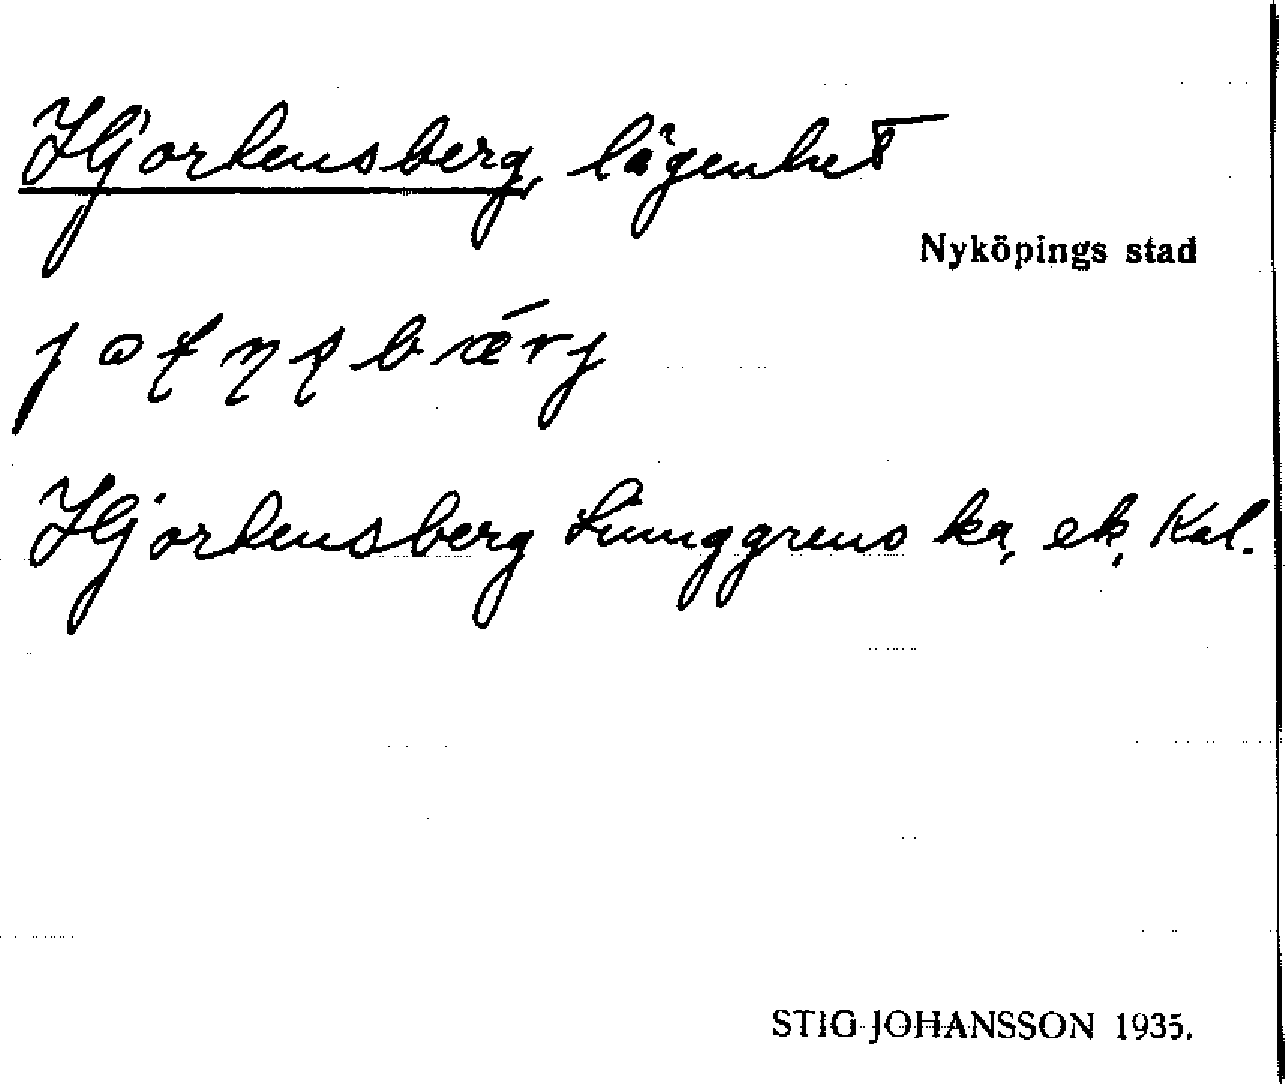 Hjortensberg, lägenhet
Nyköpings stad
Hjortensberg Ljunggrens ka, ek, Kal.
STIG JOHANSSON 1935.